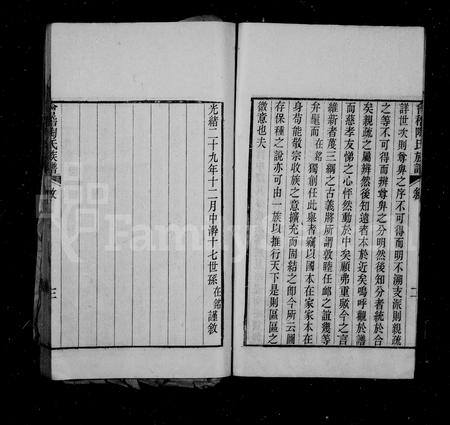 會稽陶氏族譜 敘 二
詳世次則尊卑之序不可得而明不溯支派則親疏
之等不可得而辨尊卑之分明然後知分者統於合
矣親疏之屬辨然後知遠者本於近矣嗚呼觀於譜
而慈孝友悌之心怦然動於中矣顧弗重歟今之言
維新者蔑三綱之古義將所謂敦睦任卹之誼幾等
弁髦而在銘獨創任此舉者竊以國本在家家本在
身苟能敬宗收族之意擴充而固結之卽今所云團
存保種之說亦可由一族以推行天下是則區區之
微意也夫
光緒二十九年十二月中澣十七世孫在銘謹敘
會稽陶氏族譜 敘 三
FamilySearch